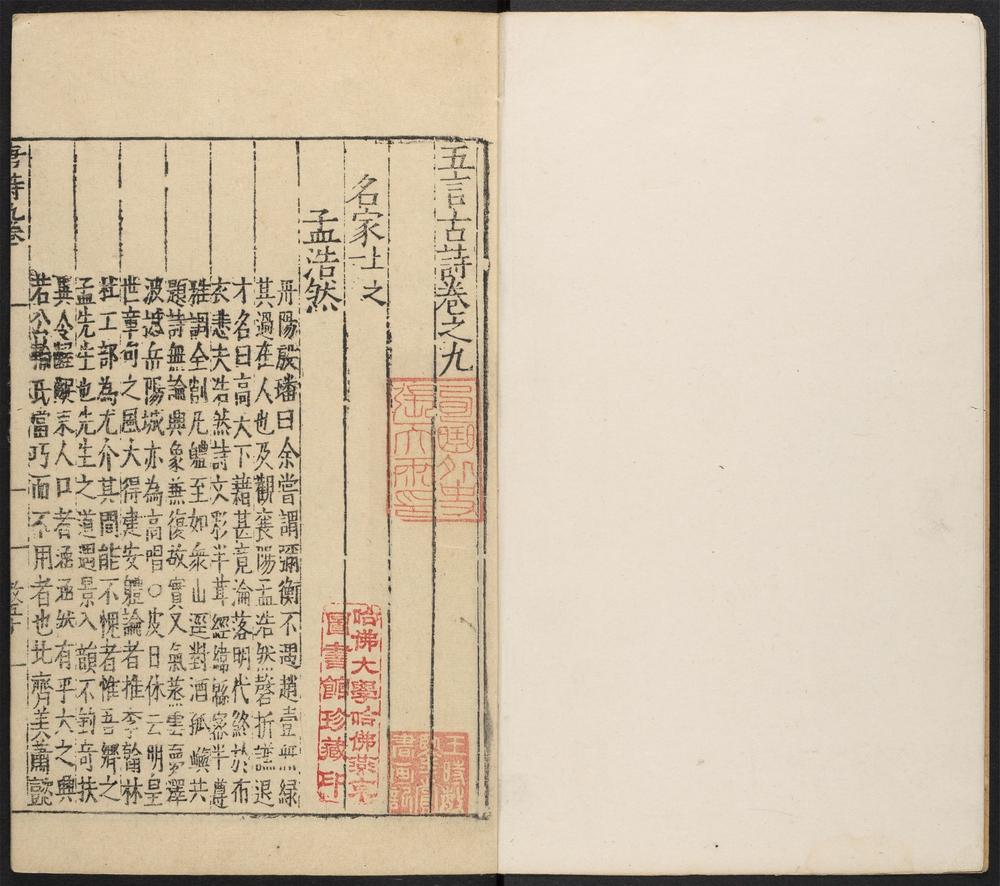 五言古詩卷之九
名家上之
孟浩然
丹陽殷璠曰余嘗謂禰衡不遇趙壹無祿
其過在人也及觀襄陽孟浩然罄折謙退
才名日高天下藉甚竟淪落明代終於布
衣悲夫浩然詩文彩半茸經緯綿密半遵
雅調全削凡體至如衆山遥對酒孤嶼共
題詩無論興象兼復故實又氣蒸雲夢澤
波撼岳陽城亦為高唱○皮日休云明皇
世章句之風大得建安體論者推李翰林
杜工部為尤介其間能不愧者惟吾鄉之
孟先生也先生之道遇景入韻不鈎奇抉
異令齷齪束人口者涵涵然有乎大之興
若公輸氏當巧而不用者也北齊美蕭愨
唐詩九卷
哈佛大學哈佛燕京
圖書館珍藏印